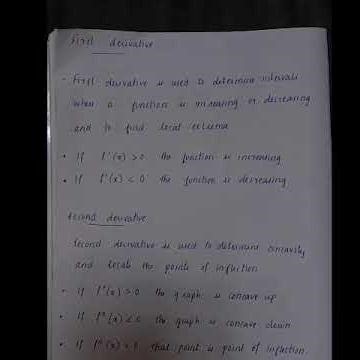 First derivative
- First derivative is used to determine intervals
when a function is increasing or decreasing
and to find local extrema
• If f'(x) > 0 the function is increasing
• If f'(x) < 0 the function is decreasing
Second derivative
Second derivative is used to determine concavity
and locate the points of inflection
• If f"(x) > 0 the graph is concave up
• If f"(x) < 0 the graph is concave down
• If f"(x) = 0 that point is point of inflection.